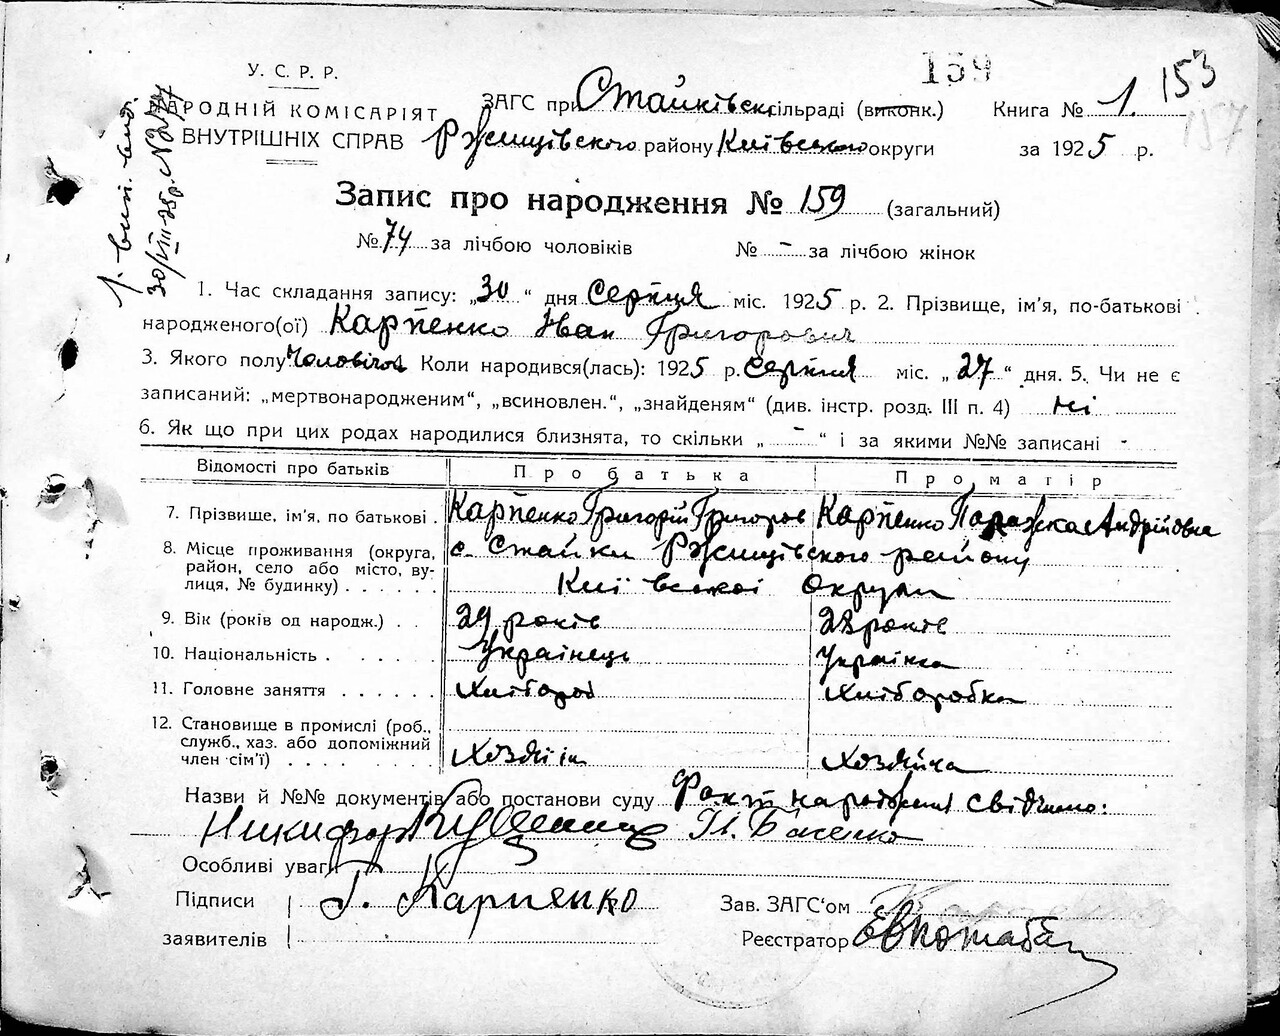 159
153
157
У. С. Р. Р.
НАРОДНІЙ КОМІСАРІЯТ
ВНУТРІШНІХ СПРАВ
ЗАГС при Стайківск. сільраді (виконк.) Книга № 1.
Ржищівского району Київського округи за 1925 р.
Запис про народження № 159 (загальний)
№ 74 за лічбою чоловіків № - за лічбою жінок
1. Час складання запису: „30“ дня Серпця міс. 1925 р. 2. Прізвище, ім'я, по-батькові
народженого(ої) Карпенко Іван Григорович
3. Якого полу Чоловічої Коли народився(лась): 1925 р. серпня міс. „27“ дня. 5. Чи не є
записаний: „мертвонародженим“, „всиновлен.“, „знайденям“ (див. інстр. розд. III п. 4) ні
6. Як що при цих родах народилися близнята, то скільки „ - “ і за якими №№ записані -
Відомості про батьків Про батька Про матір
7. Прізвище, ім'я, по батькові . Карпенко Григорій Григоров Карпенко Параска Андрійовна
8. Місце проживання (округа, район, село або місто, вулиця, № будинку) . . . . . . с. Стайки Ржищівского району
Київської Округи
9. Вік (років од народж.) . . 29 років 28 років
10. Національність . . . . . Українець Українка
11. Головне заняття . . . . . . Хлібороб Хліборобка
12. Становище в промислі (роб., служб., хаз. або допоміжний член сім'ї) . . . . . Хозяїн Хозяйка
Назви й №№ документів або постанови суду Факт народження свідчимо:
Никифор
Особливі уваги
Підписи Г. Карпенко Зав. ЗАГС'ом
заявителів Реєстратор